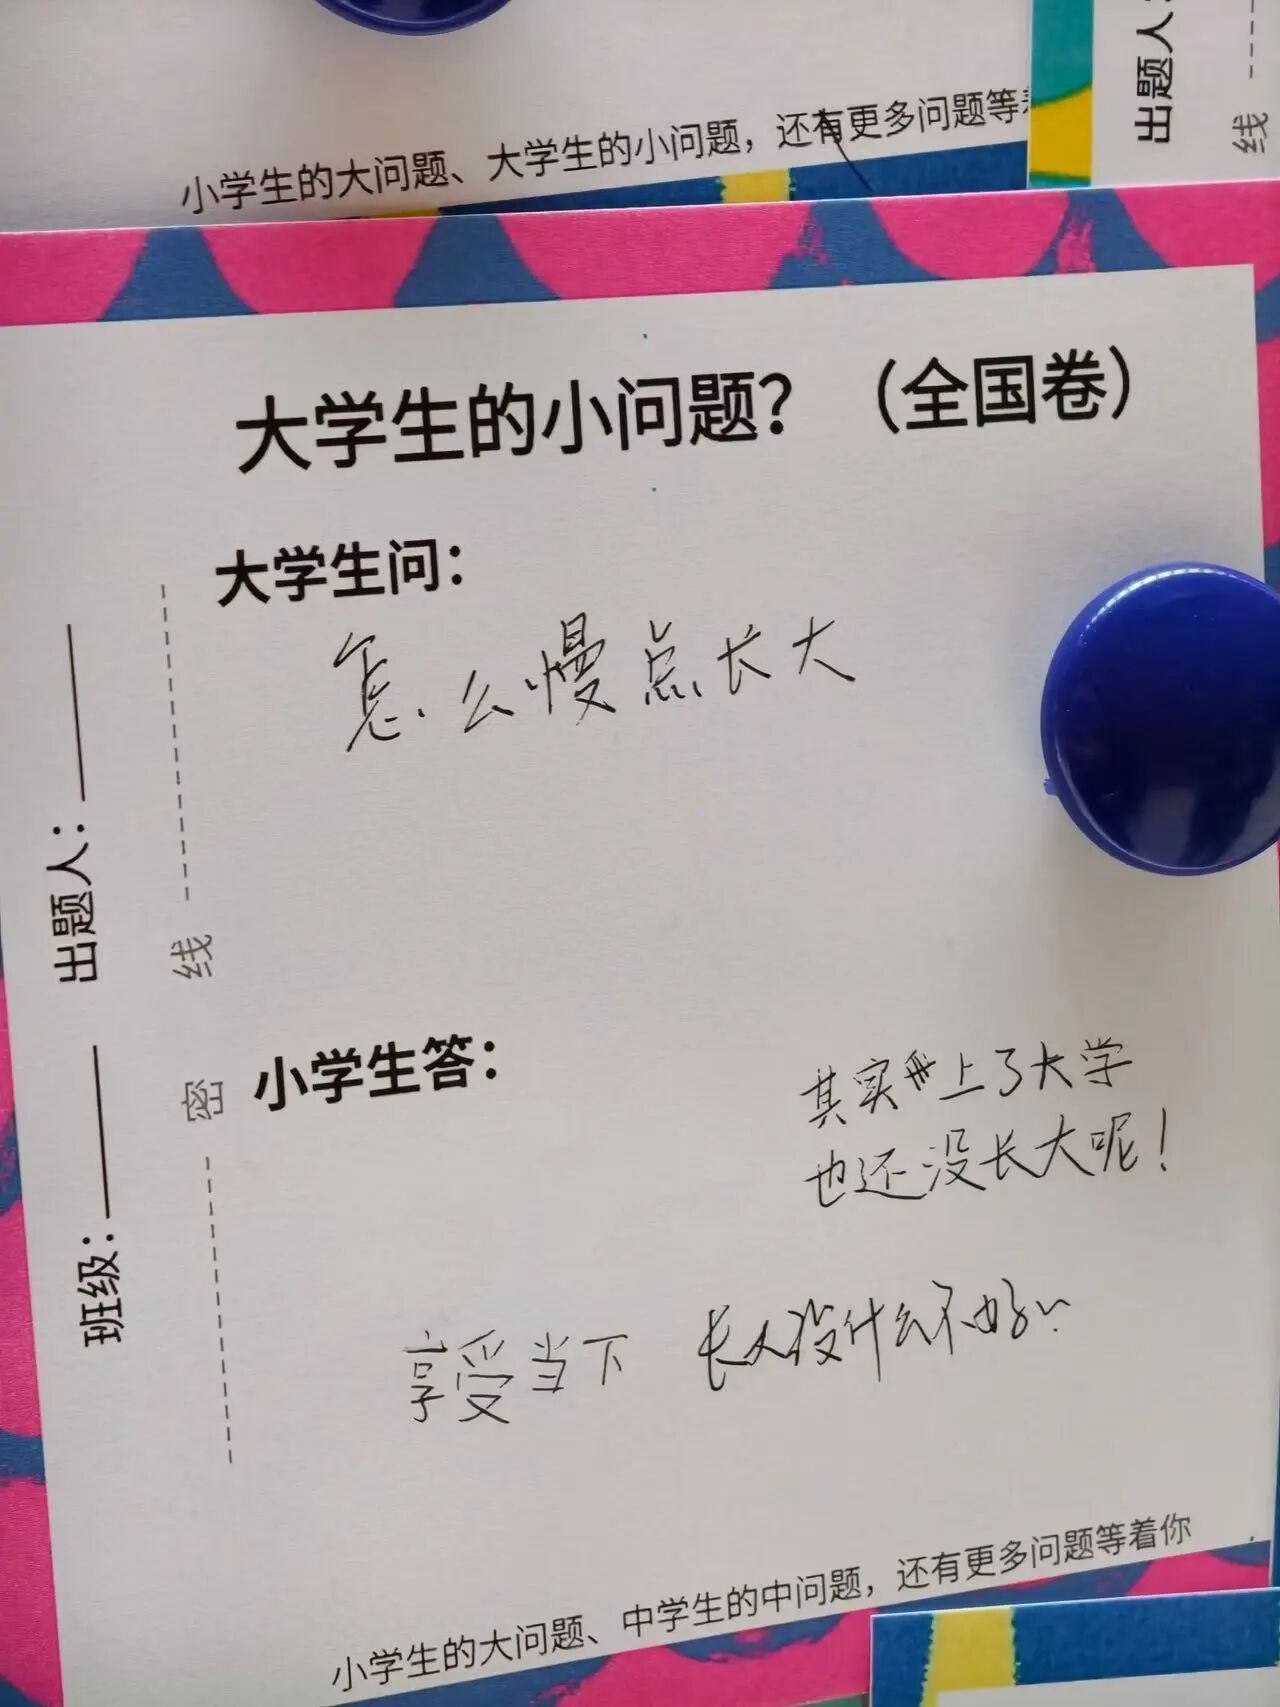 小学生的大问题、大学生的小问题，还有更多问题等
出题人：
线
大学生的小问题？（全国卷）
大学生问：
怎么慢点长大
出题人：
线
密
班级：
小学生答：
其实上了大学
也还没长大呢！
享受当下 长大没什么不好
小学生的大问题、中学生的中问题，还有更多问题等着你